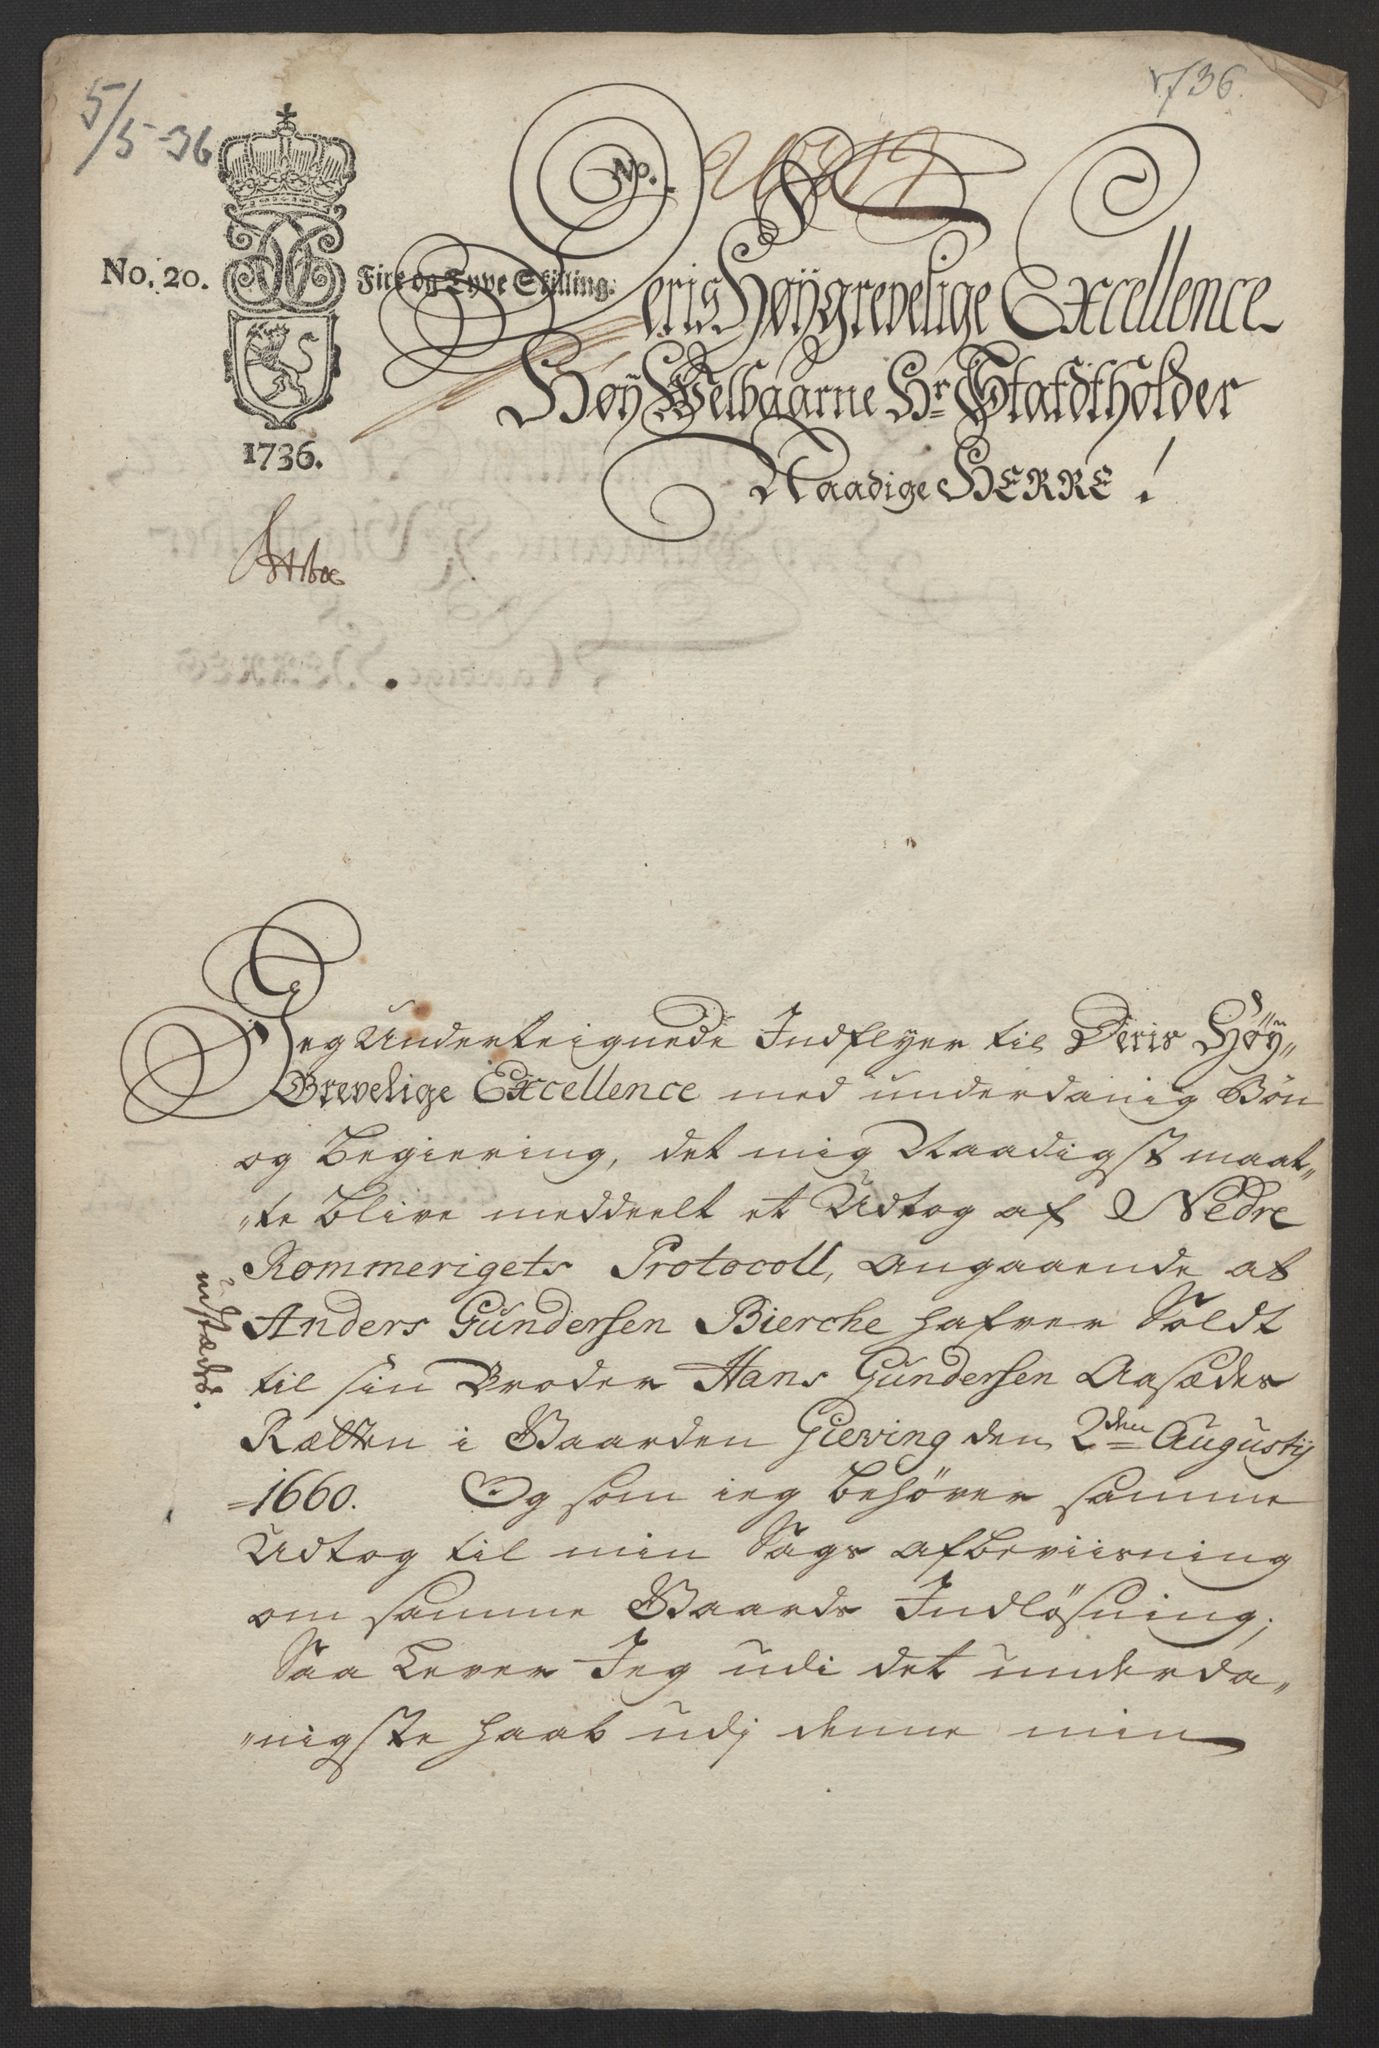 5/5-36
1736.
No. 20. Fire og Tyve Skilling.
1736.
No.
Deris Høÿgrevelige Excellence
Høÿ Welbaarne Hr Stadtholder
Naadige HERRE!
Jeg Underteignede Indflyer til Deris Høÿ„
Grevelige Excellence med underdanig Bøn
og Begiering, det mig Naadigst maat„
„te blive meddeelt et Udtog af Nedre
Rommerigets Protocoll, angaaende at
Anders Gundersen Bierche hafver Soldt
til sin Broder Hans Gundersen Aasædes
Rætten i Gaarden Gieving den 2den Augustij
1660. Og som ieg behøver samme
udstædt.
Udtog til min Sags afbeviisning
om samme Gaards Indløsning;
Saa Lever Jeg udi det underda„
„nigste haab udj denne min